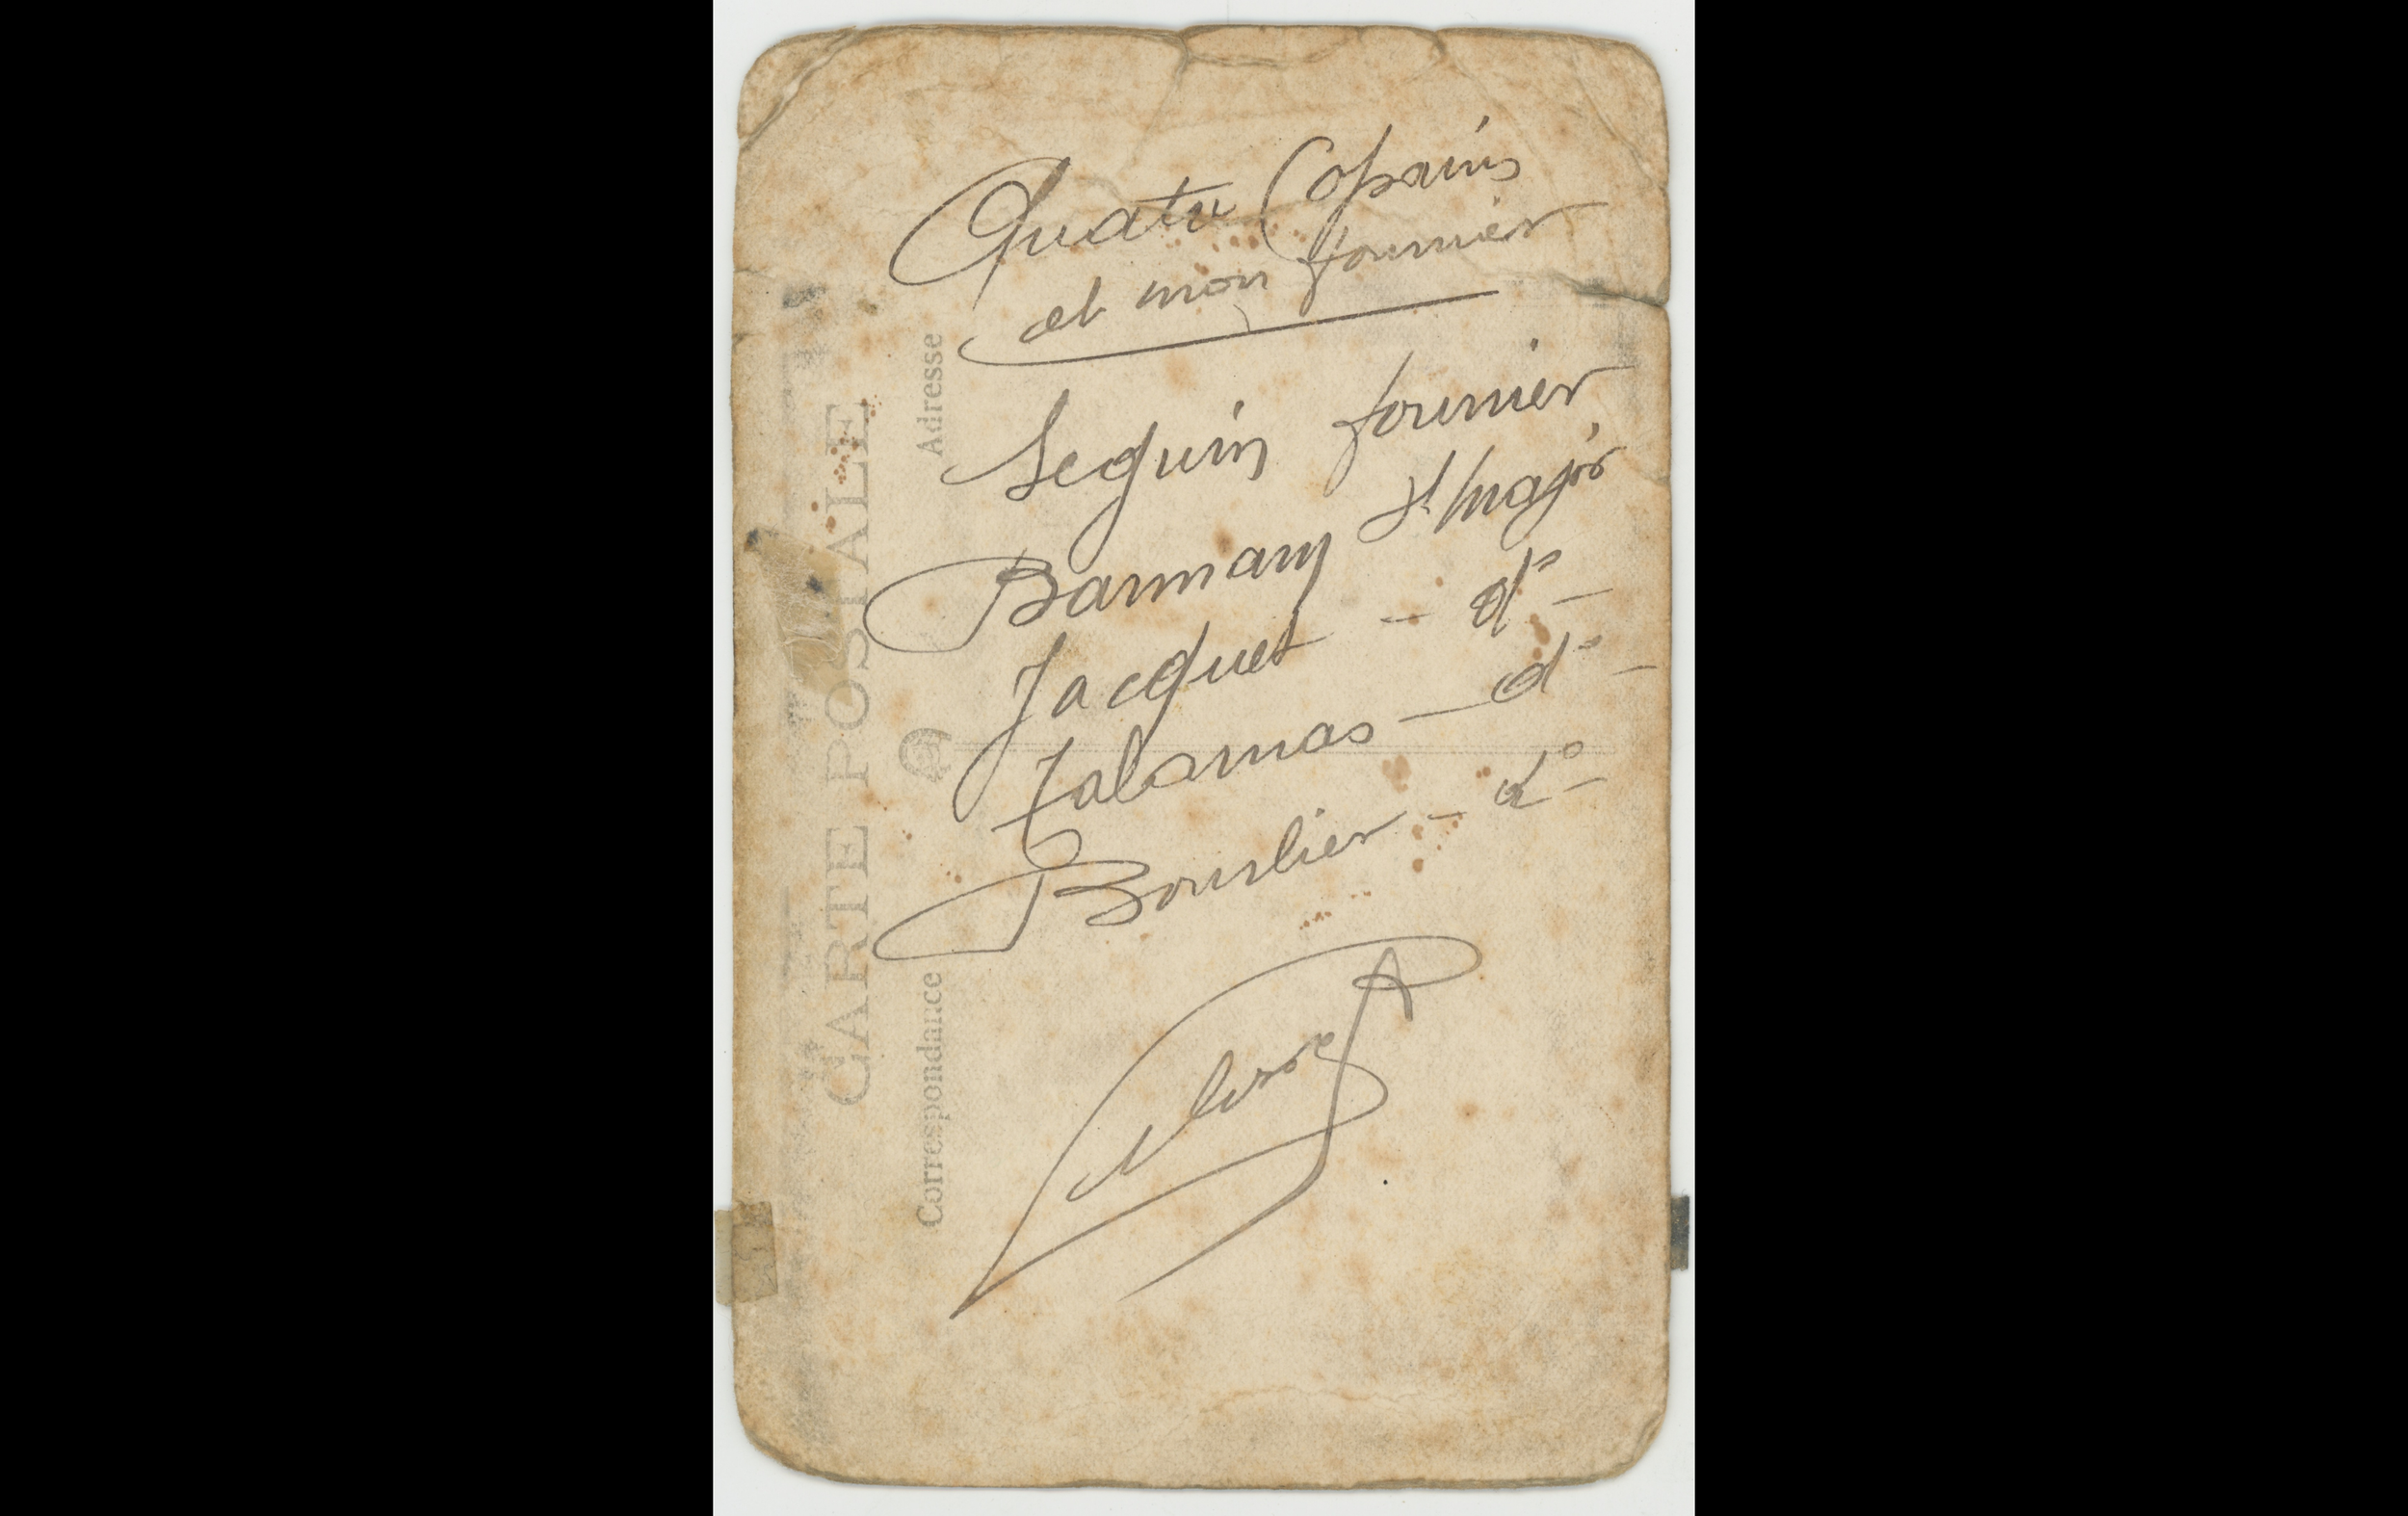 Quatre Copains
et mon fourrier
Seguin fourrier
St/major
Jacquet - do -
Talamas - do -
Bourlier - do -
CARTE POSTALE
Correspondance
Adresse